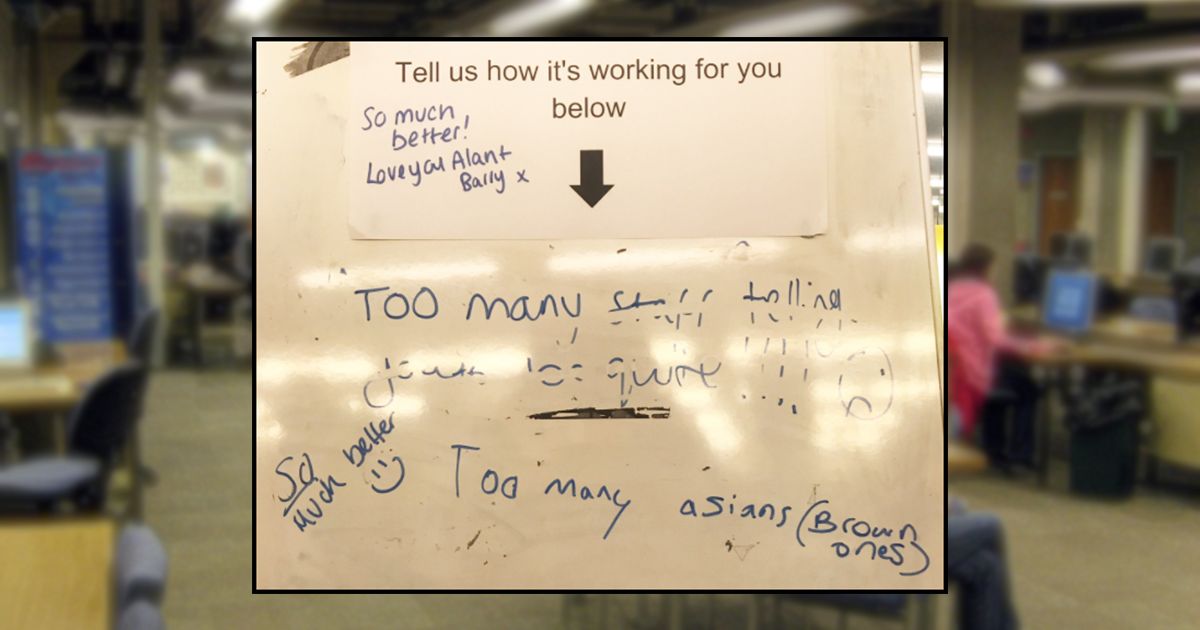 Tell us how it's working for you
below
So much
better!
Love you Alant
Bally x
TOO many staff telling
be quiet !!!
So
much better
Too many asians (Brown
ones)